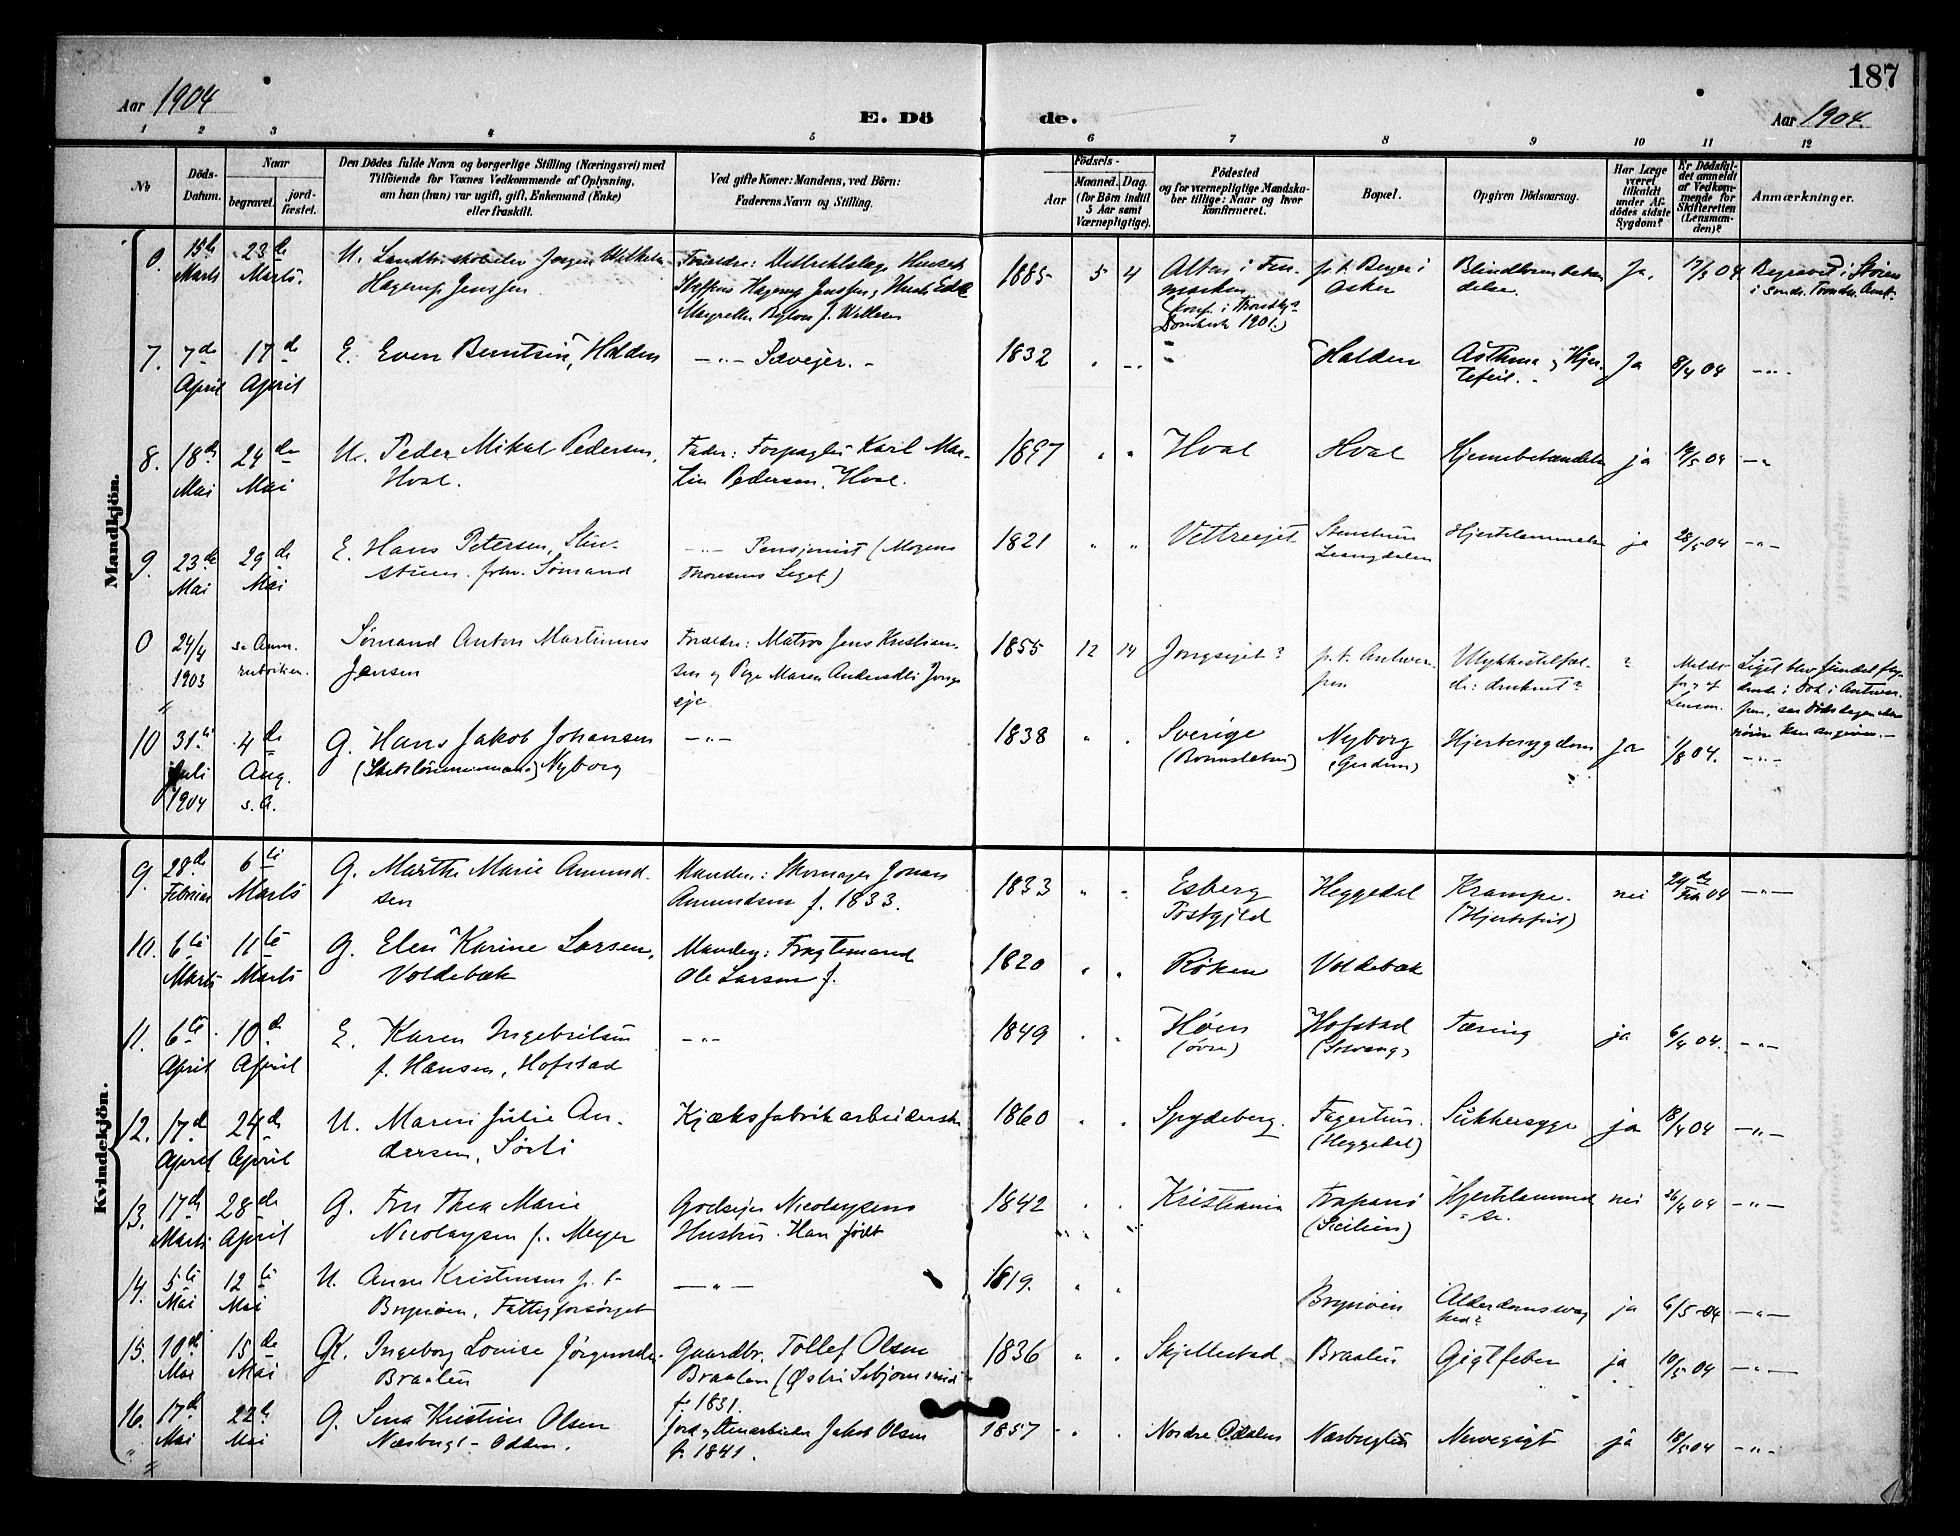 187
Aar 1904
E. Dö
de.
Aar 1904.
1 2 3 4 5 6 7 8 9 10 11 12
No
Döds-
Datum.
Naar
begravet.
jord-
fæstet.
Den Dödes fulde Navn og borgerlige Stilling (Næringsvei) med
Tilföiende for Voxnes Vedkommende af Oplysning,
om han (hun) var ugift, gift, Enkemand (Enke)
eller fraskilt.
Ved gifte Koner: Mandens, ved Börn:
Faderens Navn og Stilling.
Födsels-
Aar
Maaned. Dag.
(for Börn indtil
5 Aar samt
Værnepligtige).
Födested
og for værnepligtige Mandska-
ber tillige: Naar og hvor
konfirmeret.
Bopæl.
Opgiven Dödsaarsag.
Har Læge
været
tilkaldt
under Af-
dödes sidste
Sygdom?
Er Dödsfal-
det anmeldt
af Vedkom-
mende for
Skifteretten
(Lensman-
den)?
Anmærkninger.
Mandkjön.
0. 15de Marts 23de Marts. U. Jørgen Wilhelm
Hagerup Jenssen
Forældre:
Steffens Hagerup Jenssen, Hustr.
Margrethe
1885 5 4 Alten i Fin-
marken
(konf. i Trondhj.
Domkirke 1901.)
p.t. Berger i
Asker
Blindtarmbetæn
delse.
Ja. 17/3 04 Begravet i Støren
i søndr. Trondhj. Amt.
7. 7de April 17de April E. Even Berntsen, Halden
—"— Selveier. –
1832 Halden Asthma og Hjer-
tefeil. Ja 8/4 04 —"—
8. 18de Mai 24de Mai U. Peder Mikal Pedersen,
Hval.
Fader: Forpagter Karl Mar-
tin Pedersen, Hval.
1897 " " Hval Hval Hjernebetændelse ja 19/5 04 —"—
9. 23de Mai 29de Mai E. Hans Petersen, Sten-
stuen. forhv. Sømand
—"— Pensjonist (Mogens
Thoresens Legat)
1821 " " Vettreeiet Stenstuen
Leangdalen
Hjertelammelse ja 28/5 04 —"—
0 24/4 1903 se Anm.
rubriken.
Sømand Anton Martinus
Jensen
Forældre: Matros Jens Kristian-
sen og Pige Maren Andersdtr. Jongs
eje
1855 12 14 Jongseiet? p.t. Antwer-
pen
Ulykkestilfæl-
de: druknet?
? Meldt
Lensm.
Liget blev fundet
i Dok i Antwer-
pen,
10 31te Juli 1904 4de Aug. s. A. G. Hans Jakob Johansen
Nyborg
—"—
1838 " " Sverige Nyborg Hjertesygdom Ja 1/8 04. —"—
Kvindekjön.
9. 28de Februar 6te Marts G. Marthe Marie Amund-
sen
Manden: Skomager Johan
Amundsen f. 1833.
1833 " " Esberg
Postgjeld
Heggedal Krampe.
(Hjertefeil)
nei 29de Feb 04 —"—
10. 6te Marts 11te Marts G. Elen Karine Larsen,
Voldebæk
Manden: Fragtemand
Ole Larsen f.
1820 " " Røken Voldebæk
11. 6te April 10de April E. Karen Ingebrigtsen
f. Hansen, Hofstad
—"—
1849 " " Høn
(øvre)
Hofstad
(Solvang)
Tæring ja 6/4 04. —"—
12. 17de April 24de April U. Maren Julie An-
dersen, Sørli
Kjæksfabrikarbeiderske
1860 " " Spydeberg. Fagertun.
(Heggedal)
Sukkersyge ja 18/4 04 —"—
13. 17de Marts 28de April G. Fru Thea Marie
Nicolaysen f. Meyer
Godseier Nicolaysens
Hustru. Han født
1842 " " Kristiania Trapani
(Sicilien)
Hjertelammel
se.
nei 26/4 04 —"—
14. 5te Mai 12te Mai U. Anne Kristensen p.t.
Brynøen, Fattigforsørget
—"—
1819. " " Brynøen Alderdomssvag
hed? ja 6/5 04 —"—
15. 10de Mai 15de Mai Ingeborg Louise Jørgensdr.
Braaten
Gaardbr. Tollef Olsen
Braaten
f. 1831.
1836 " " Skjellestad Braaten Gigtfeber ja 10/5 04 —"—
16. 17de Mai 22de Mai G. Lena Kristine Olsen
Næsbugt-Odden.
Jord og Stenarbeider Jakob Olsen
f. 1841.
1857 " " Nordre Odalen Næsbugten Nervegigt ja 18/5 04 —"—